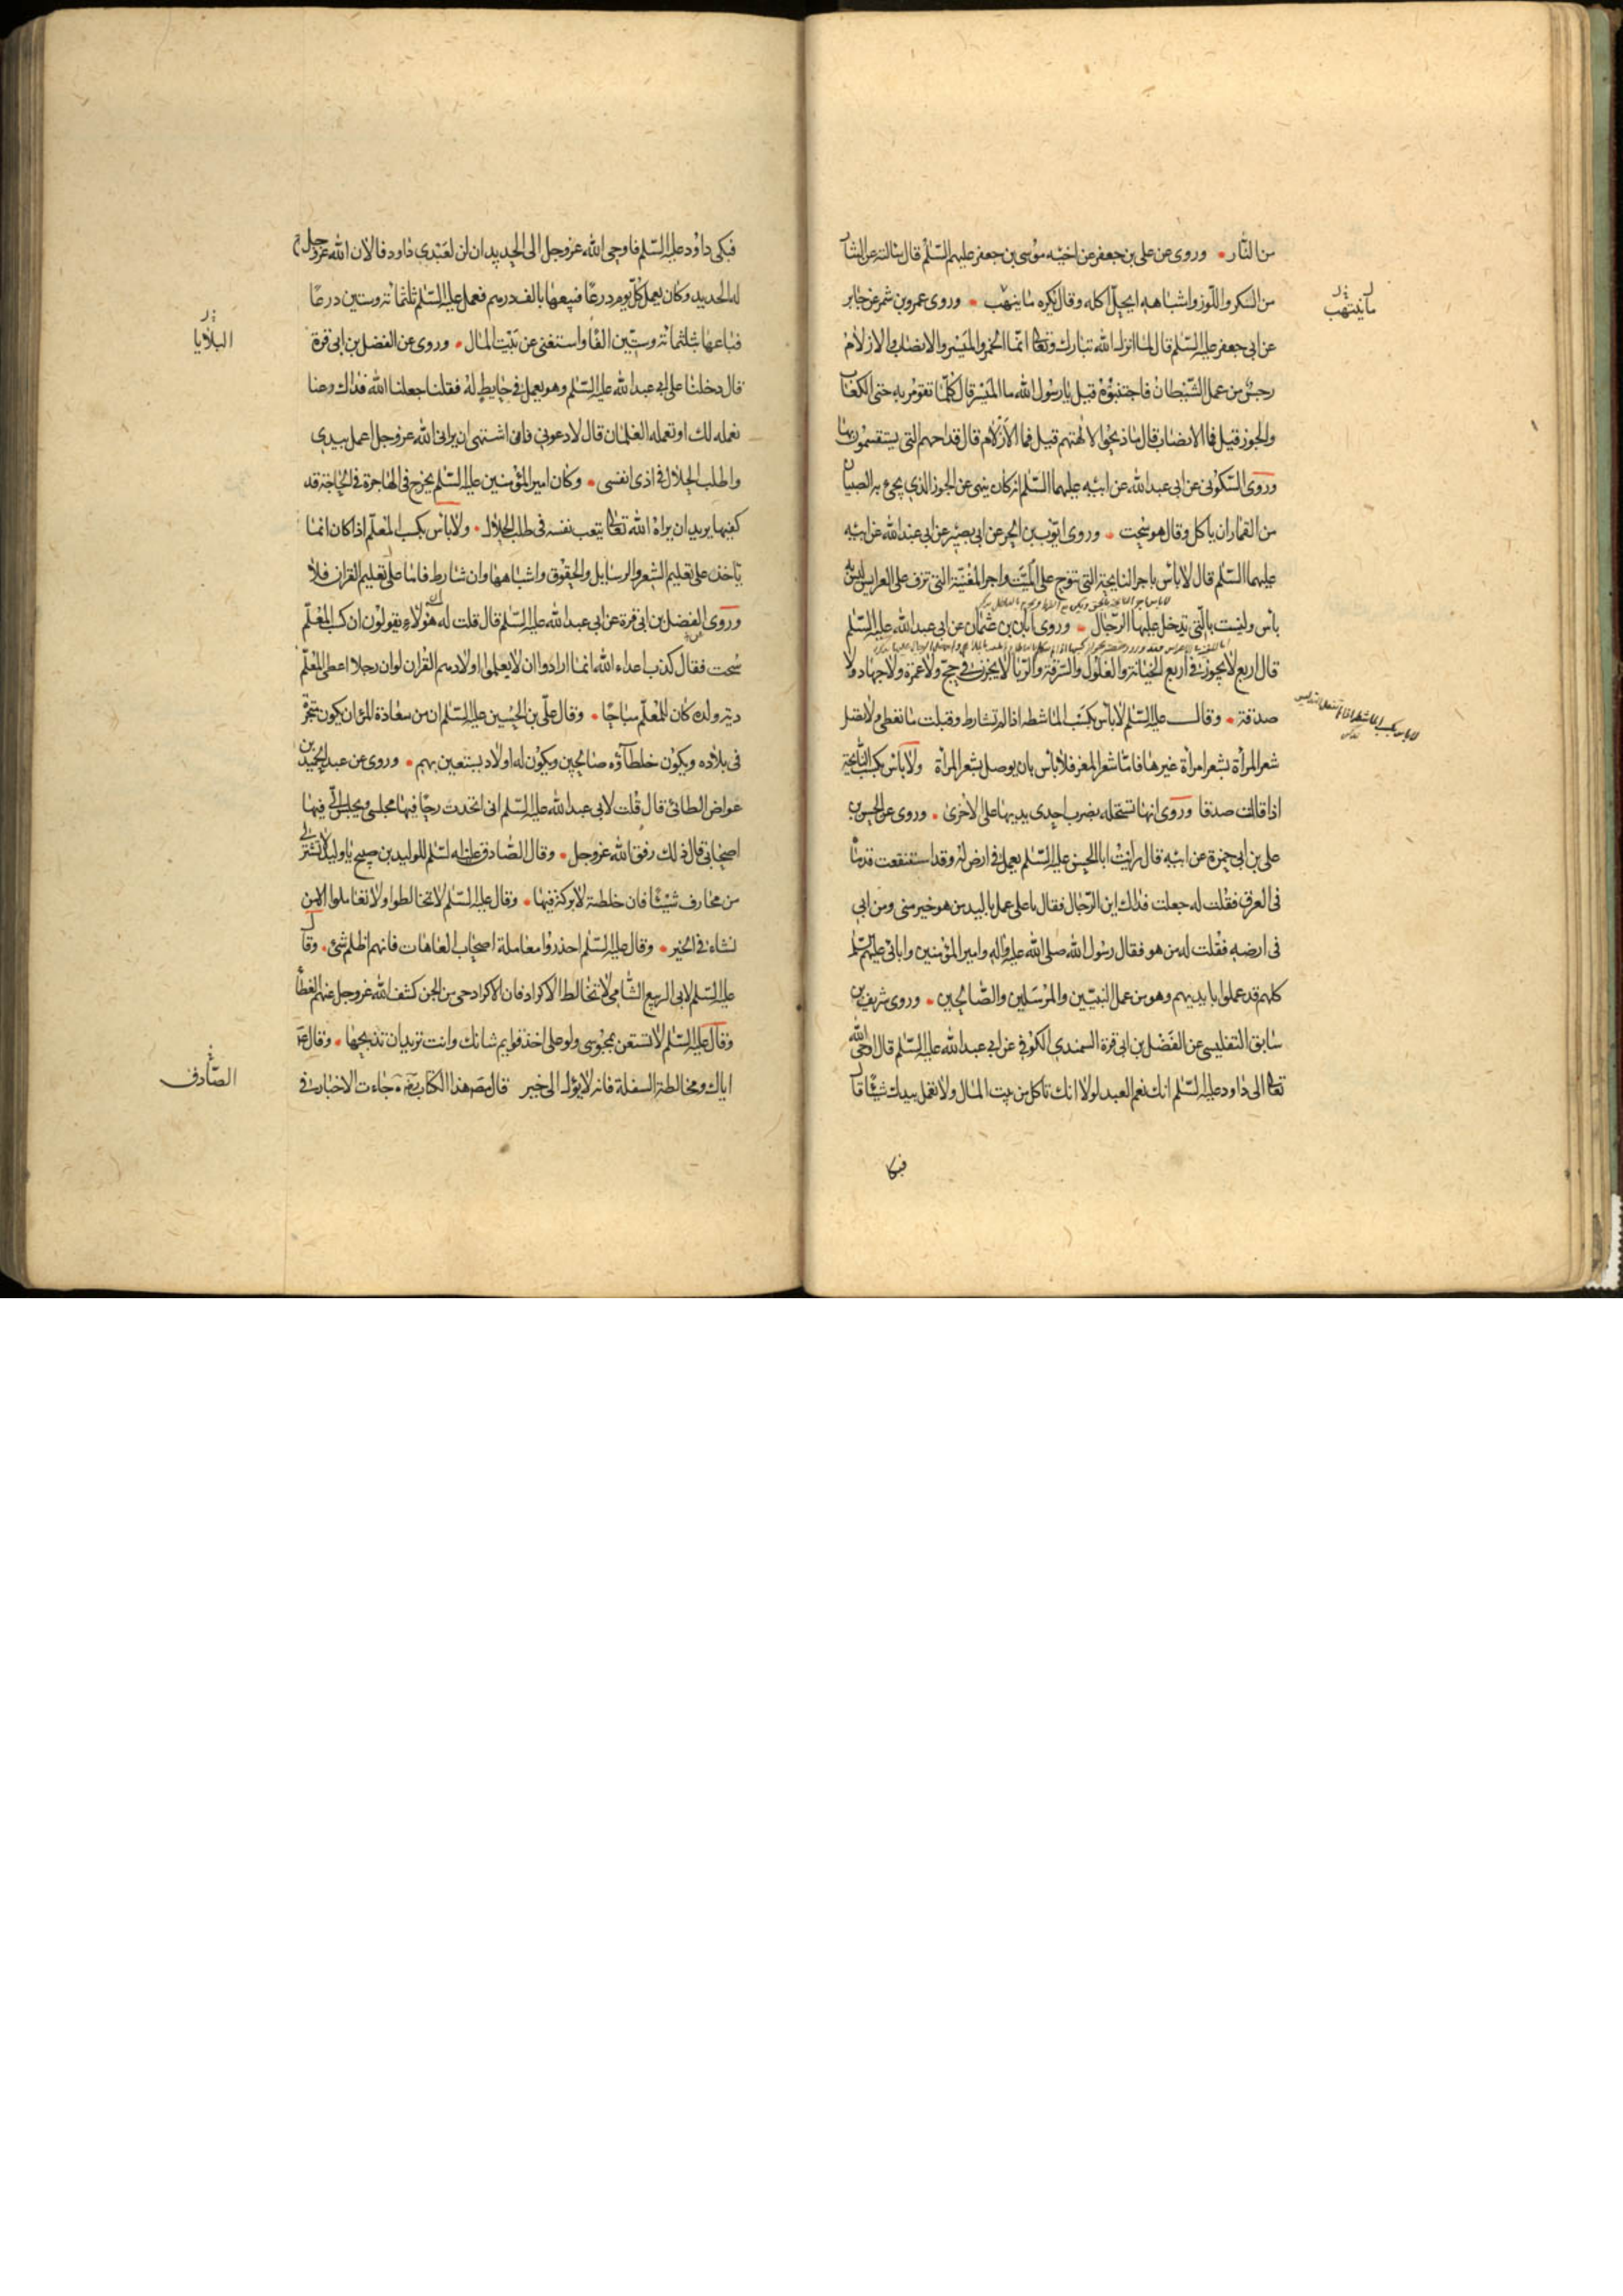 من النار وروى عن على بن جعفر عن اخيه موسى بن جعفر عليهم السلم قال سالته عن النثار
من السكر واللوز واشباهه ايحل اكله وقال يكره ما ينهب وروى عمرو بن شمر عن جابر
عن ابى جعفر عليه السلم قال لما انزل الله تبارك وتعالى انما الخمر والميسر والانصاب والازلام
رجس من عمل الشيطان فاجتنبوه قيل يا رسول الله ما الميسر قال كلما تقومر به حتى الكعاب
والجوز قيل فما الانصاب قال ما ذبحوا لالهتهم قيل فما الازلام قال قداحهم التى يستقسمون بها
وروى السكونى عن ابى عبد الله عن ابيه عليهما السلم انه كان ينهى عن الجوز الذي يجئ به الصبيان
من القمار ان ياكل وقال هو سحت وروى ايوب بن الحر عن ابى بصير عن ابى عبد الله عن ابيه
عليهما السلم قال لا باس باجر النايحة التى تنوح على الميت واجر المغنية التى تزف على العرايس ليس به
باس وليست بالتى يدخل عليها الرجال وروى ابان بن عثمان عن ابى عبد الله عليه السلم
قال اربع لا يجوز فى اربع الخيانة والغلول والسرقة والربا لا يجزن في حج ولا عمرة ولا جهاد ولا
صدقة وقال عليه السلم لا باس بكسب الماشطه اذا لم تشارط وقبلت ما تعطى ولا تصل
شعر المرأة بشعر امرأة غيرها فاما شعر المعز فلا باس بان يوصل بشعر المرأة ولا باس بكسب النايحة
اذا قالت صدقا وروى انها تستحله بضرب احدى يديها على الاخرى وروى عن الحسن بن
على بن ابى حمزة عن ابيه قال رايت ابا الحسن عليه السلم يعمل في ارض له وقد استنقعت قدماه
فى العرق فقلت له جعلت فداك اين الرجال فقال يا على عمل باليد من هو خير منى ومن ابى
فى ارضه فقلت له من هو فقال رسول الله صلى الله عليه واله وامير المؤمنين واباني عليهم السلم
كلهم قد عملوا بايديهم وهو من عمل النبيين والمرسلين والصالحين وروى شريف بن
سابق التفليسى عن الفضل بن ابى قرة السمندي الكوفى عن ابي عبد الله عليه السلم قال اوحى الله
تعالى الى داود عليه السلم انك نعم العبد لولا انك تاكل من بيت المال ولا تعمل بيدك شيئا قال
فبكا
ما ينتهب
فبكى داود عليه السلم فاوحى الله عز وجل الى الحديد ان لن لعبدى داود فالان الله عز وجل
له الحديد وكان يعمل كل يوم درعا فيبيعها بالف درهم فعمل عليه السلم ثلثمائة وستين درعا
فباعها بثلثمائة وستين الفا واستغنى عن بيت المال وروى عن الفضل بن ابى قرة
قال دخلنا على ابي عبد الله عليه السلم وهو يعمل في حايط له فقلنا جعلنا الله فداك دعنا
نعمله لك او تعمله الغلمان قال لا دعونى فانى اشتهى ان يرانى الله عز وجل اعمل بيدى
واطلب الحلال فى اذى نفسى وكان امير المؤمنين عليه السلم يخرج فى الهاجرة فى الحاجة قد
كفيها يريد ان يراه الله تعالى يتعب نفسه فى طلب الحلال ولا باس بكسب المعلم اذا كان انما
ياخذ على تعليم الشعر والرسايل والحقوق واشباهها وان شارط فاما على تعليم القران فلا
وروى الفضل بن ابى قرة عن ابى عبد الله عليه السلم قال قلت له ان هؤلاء يقولون ان كسب المعلم
سحت فقال كذب اعداء الله انما ارادوا ان لا يعلموا اولادهم القران لو ان رجلا اعطى المعلم
دية ولده كان للمعلم مباحا وقال على بن الحسين عليه السلم ان من سعادة المرء ان يكون متجره
فى بلاده ويكون خلطاؤه صالحين ويكون له اولاد يستعين بهم وروى عن عبد الحميد بن
عواض الطائى قال قلت لابى عبد الله عليه السلم انى اتخذت رحا فيها مجلسى ويجلس الى فيها
اصحابى قال ذلك رفق الله عز وجل وقال الصادق عليه السلم للوليد بن صبيح يا وليد لا تشتر لى
من محارف شيئا فان خلطته لا بركة فيها وقال عليه السلم لا تخالطوا ولا تعاملوا الا من
نشاء فى الخير وقال عليه السلم احذروا معاملة اصحاب العاهات فانهم اظلم شئ وقال
عليه السلم لابى الربيع الشامى لا تخالط الاكراد فان الاكراد حى من الجن كشف الله عز وجل عنهم الغطا
وقال عليه السلم لا تستعن بمجوسى ولو على اخذ قوايم شاتك وانت تريد ان تذبحها وقال ع
اياك ومخالطة السفلة فانه لا يؤل الى خير قال مص هذا الكتاب ره جاءت الاخبار فى
البلايا
الصادق